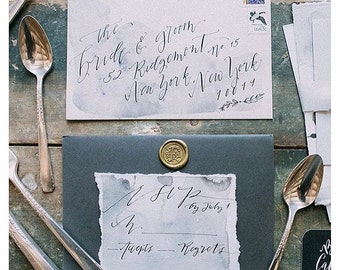 The
Bride & Groom
52 Ridgemont no 15
New York, New York
10014
RSVP
by July 1
M
Accepts Regrets